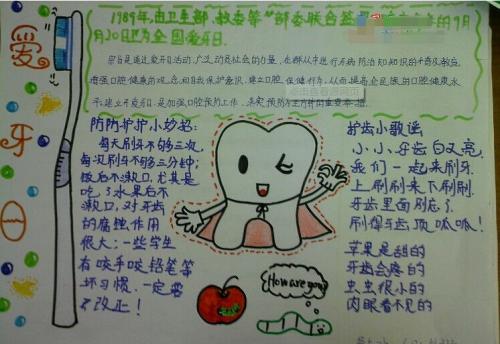 爱
牙
日
1989年,由卫生部、教委等
部委联合签
的9月
20日为全国爱牙日.
宗旨是通过爱牙日活动,广泛动员社会的力量,在群众中进行牙病防治知识的
增强口腔健康的观念和自我保护意识,建立口腔保健行为,从而提高全民族的口腔健康水
平,建立爱牙日,是加强口腔预防工作,
点击查看源网页
每天刷牙不够三次,
每次刷牙不够三分钟;
饭后不漱口,尤其是
吃了水果后不
漱口,对牙齿
的腐蚀作用
很大;一些学生
有咬手咬铅笔等
坏习惯.一定要
改正!
护齿小歌谣
小小牙齿白又亮,
我们一起来刷牙.
上刷刷来下刷刷,
牙齿里面别忘了.
刷得牙齿顶呱呱!
苹果是甜的
牙齿会疼的
虫虫很小的
肉眼看不见的
How are you?